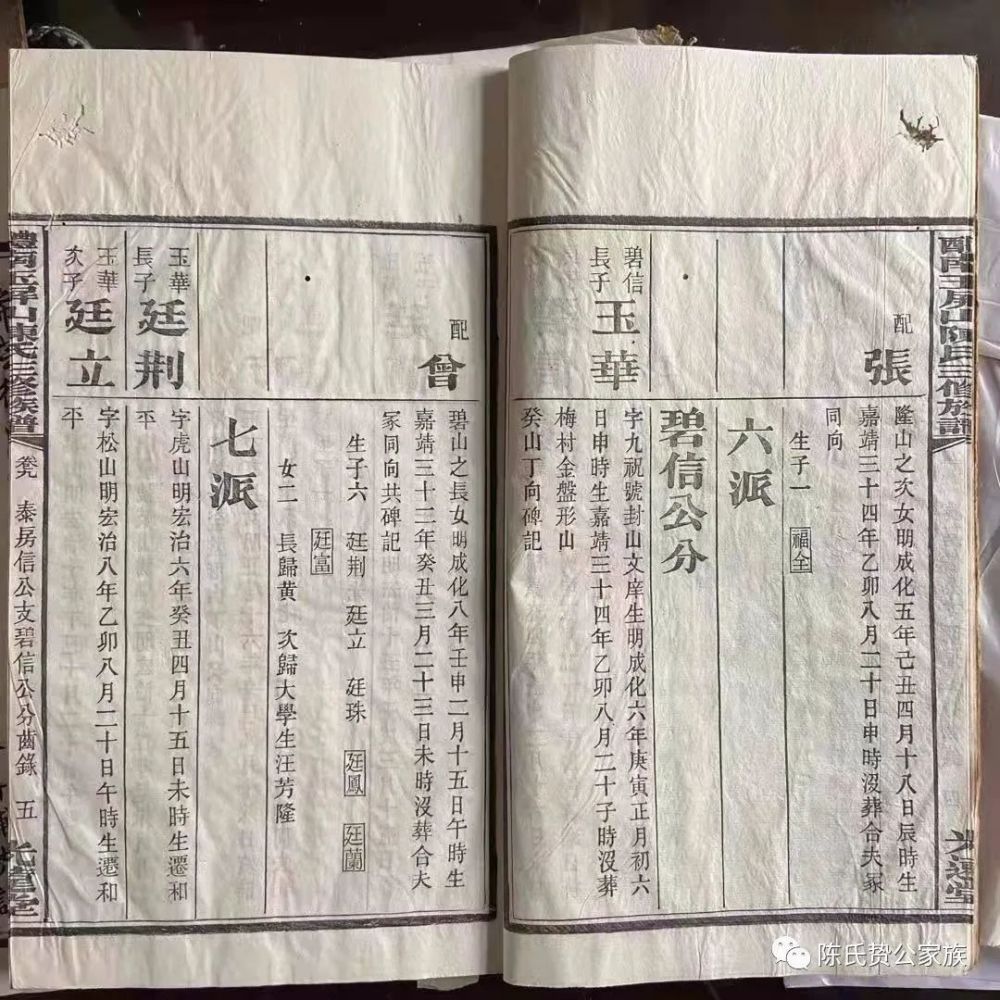 配 張
隆山之次女明成化五年己丑四月十八日辰時生
嘉靖三十四年乙卯八月二十日申時沒葬合夫冢
同向
生子一 福全
六派
碧信公分
碧信長子 玉華
字九祝號封山文庠生明成化六年庚寅正月初六
日申時生嘉靖三十四年乙卯八月二十子時沒葬
梅村金盤形山
癸山丁向碑記
配 曾
碧山之長女明成化八年壬申二月十五日午時生
嘉靖三十二年癸丑三月二十三日未時沒葬合夫
冢同向共碑記
生子六 廷荆 廷立 廷珠 廷鳳 廷蘭
廷富
女二 長歸黄 次歸大學生汪芳隆
七派
玉華長子 廷荆
字虎山明宏治六年癸丑四月十五日未時生遷和
平
玉華次子 廷立
字松山明宏治八年乙卯八月二十日午時生遷和
平
玉屏山陳氏三修族譜
泰房信公支碧信公分齒錄 五
陈氏贽公家族